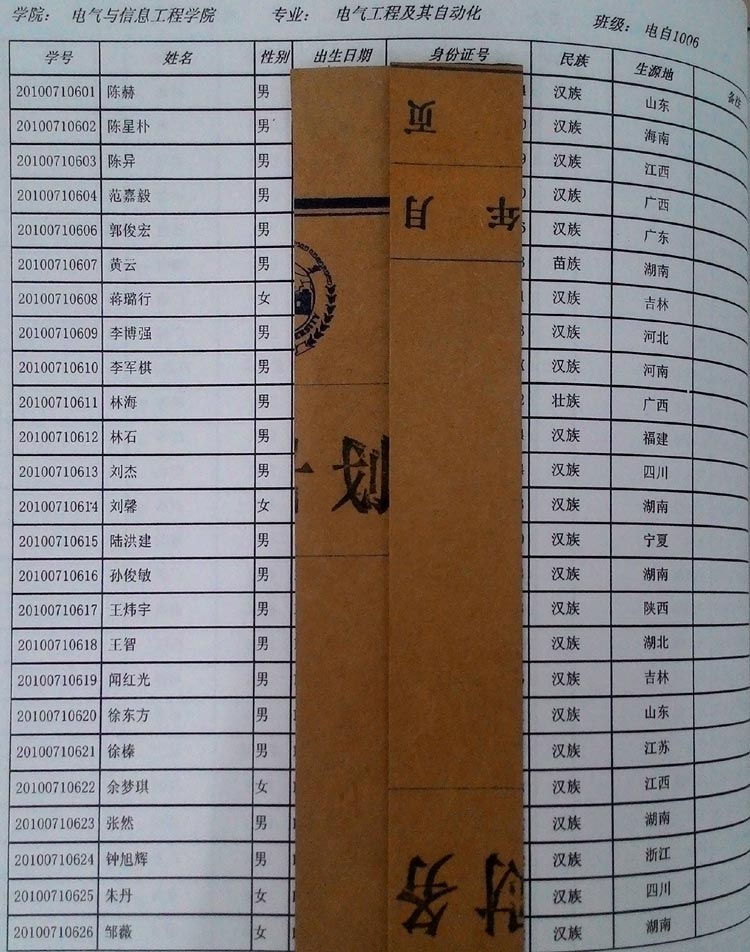 学院： 电气与信息工程学院 专业： 电气工程及其自动化 班级：电自1006
学号 姓名 性别 出生日期 身份证号 民族 生源地 备注
20100710601 陈赫 男 汉族 山东
20100710602 陈星朴 男 汉族 海南
20100710603 陈异 男 汉族 江西
20100710604 范嘉毅 男 汉族 广西
20100710606 郭俊宏 男 汉族 广东
20100710607 黄云 男 苗族 湖南
20100710608 蒋璐行 女 汉族 吉林
20100710609 李博强 男 汉族 河北
20100710610 李军棋 男 汉族 河南
20100710611 林海 男 壮族 广西
20100710612 林石 男 汉族 福建
20100710613 刘杰 男 汉族 四川
20100710614 刘馨 女 汉族 湖南
20100710615 陆洪建 男 汉族 宁夏
20100710616 孙俊敏 男 汉族 湖南
20100710617 王炜宇 男 汉族 陕西
20100710618 王智 男 汉族 湖北
20100710619 闻红光 男 汉族 吉林
20100710620 徐东方 男 汉族 山东
20100710621 徐榛 男 汉族 江苏
20100710622 余梦琪 女 汉族 江西
20100710623 张然 男 汉族 湖南
20100710624 钟旭辉 男 汉族 浙江
20100710625 朱丹 女 汉族 四川
20100710626 邹薇 女 汉族 湖南
页
年 月
财务